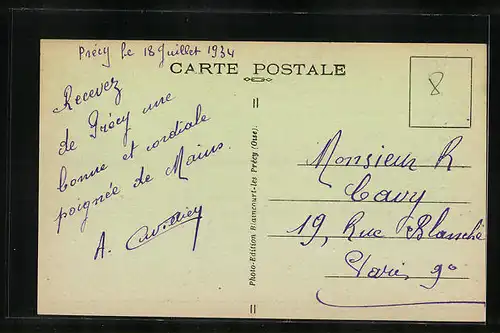 Précy le 18 Juillet 1934
CARTE POSTALE
Recevez
de Précy une
bonne et cordiale
poignée de Mains.
A.
Photo-Edition Blaincourt-les Précy (Oise).
Monsieur R
Cavy
19, Rue Blanche
Paris 9e